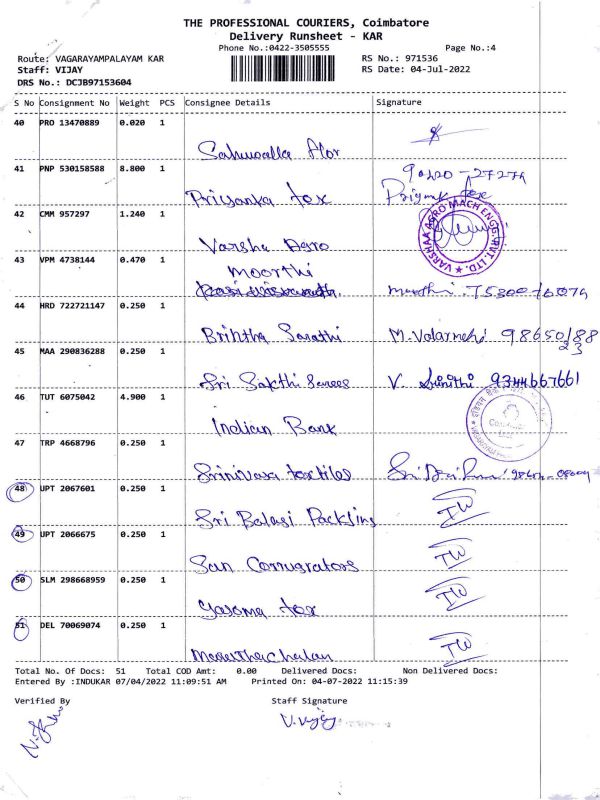 THE PROFESSIONAL COURIERS, Coimbatore
Delivery Runsheet - KAR
Phone No.:0422-3505555 Page No.:4
Route: VAGARAYAMPALAYAM KAR RS No.: 971536
Staff: VIJAY RS Date: 04-Jul-2022
DRS No.: DCJB97153604
S No Consignment No Weight PCS Consignee Details Signature
40 PRO 13470889 0.020 1
41 PNP 530158588 8.800 1
Priyanka tex Priyanka tex
42 CMM 957297 1.240 1
Varsha Agro VARSHAA AGRO MACH ENGG. PVT. LTD.
43 VPM 4738144 0.470 1
Moorthi
44 HRD 722721147 0.250 1
Brintha Sarathi
45 MAA 290836288 0.250 1
Sri Sakthi Sarees V. Sunithi 9344667661
46 TUT 6075042 4.900 1
Indian Bank
47 TRP 4668796 0.250 1
Srinivasa textiles
48 UPT 2067601 0.250 1
Sri Balaji Packjins IW
49 UPT 2066675 0.250 1
San Corrugrators IW
50 SLM 298668959 0.250 1
IW
51 DEL 70069074 0.250 1
IW
Total No. Of Docs: 51 Total COD Amt: 0.00 Delivered Docs: Non Delivered Docs:
Entered By :INDUKAR 07/04/2022 11:09:51 AM Printed On: 04-07-2022 11:15:39
Verified By Staff Signature
V. Vijay